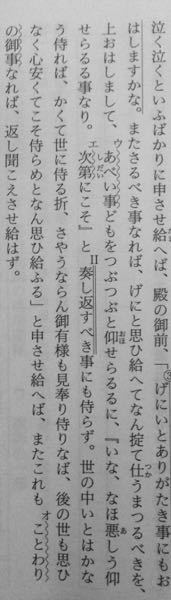 泣く泣くといふばかりに申させ給へば、殿の御前、「げにいとありがたき事にもお
はしますかな。またさるべき事なれば、げにと思ひ給へてなん掟て仕うまつるべきを、
つか
上おはしまして、あべい事どもをつぶつぶと仰せらるるに、『いな、なほ悪しう仰
ウ
おほ
あ
せらるる事なり。次第にこそ』と奏し返すべき事にも侍らず。世の中いとはかな
エ
しだい
Ⅱ
う侍れば、かくて世に侍る折、さやうならん御有様も見奉り侍りなば、後の世も思ひ
なく心安くてこそ侍らめとなん思ひ給ふる」と申させ給へば、またこれもことわり
オ
の御事なれば、返し聞こえさせ給はず。